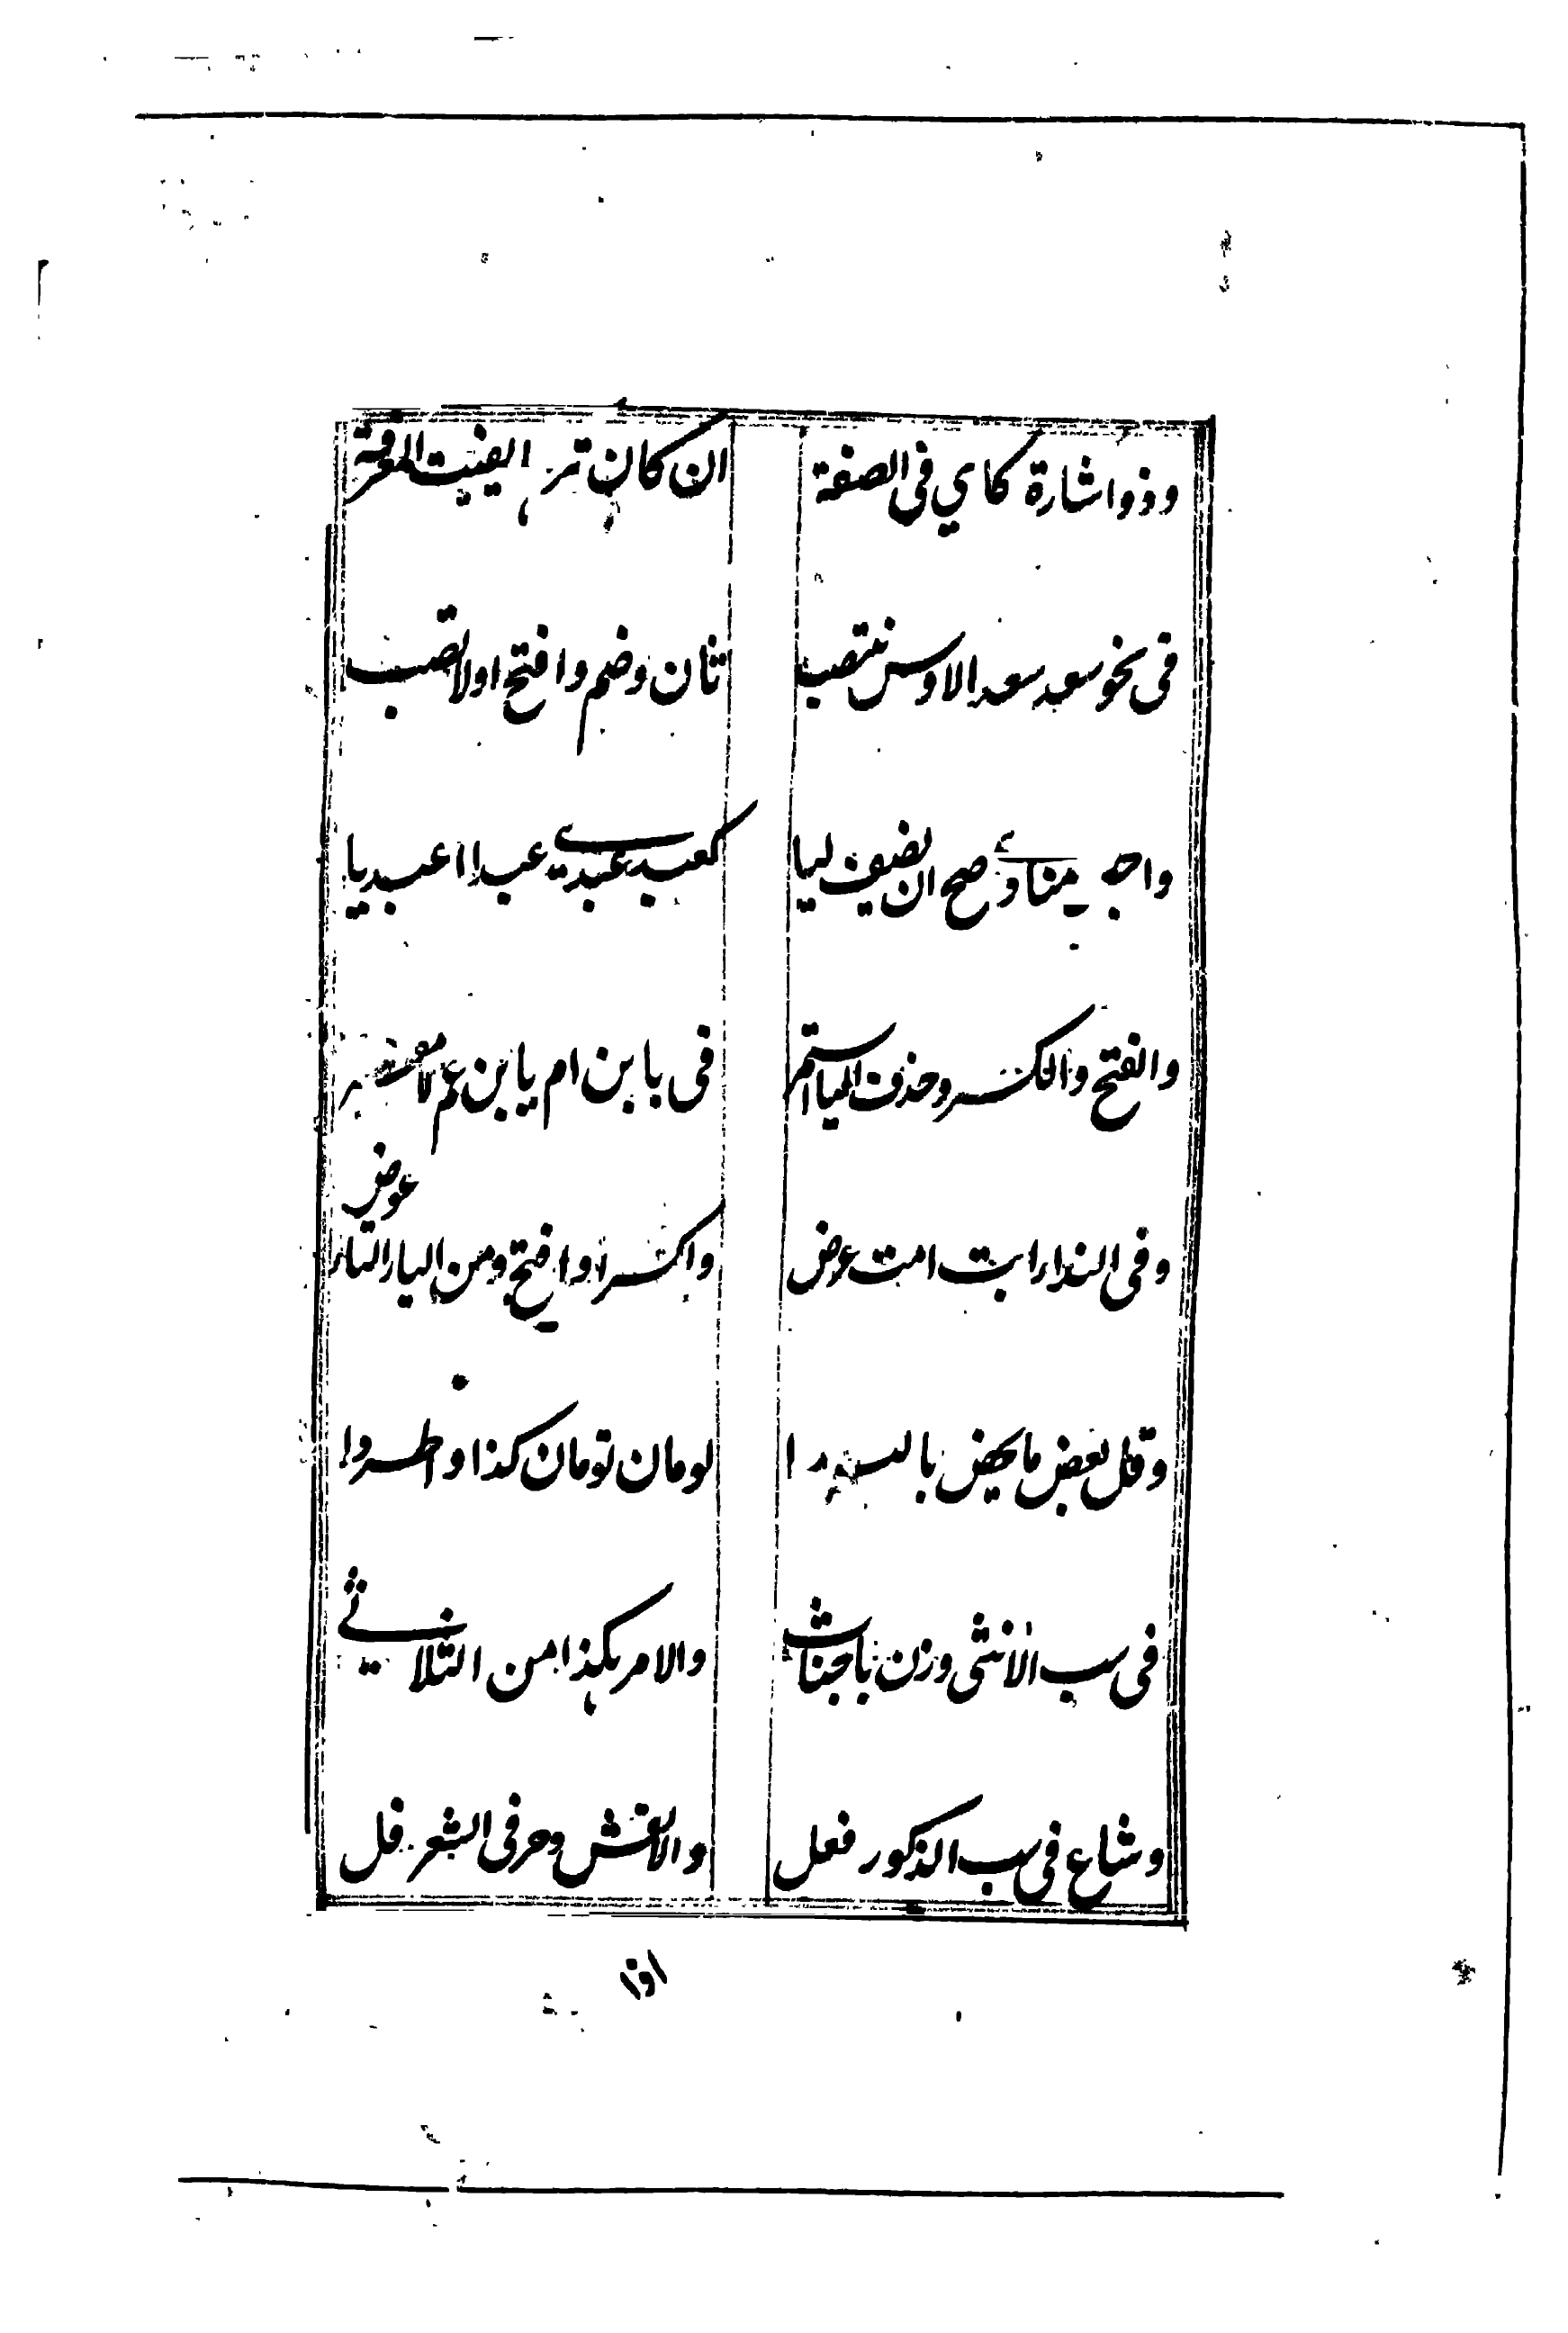 وذو اشارة كاي في الصفة ان كان تركها يفيت المعرفة
في نحو سعد سعد الاوس ينتصب ثان وضم وافتح اولا تصب
واجعل منادى صح ان يضف ليا كعبد عبدي عبد عبدا عبديا
والفتح والكسر وحذف اليا استمر في يا بن ام يا بن عم لا مفر
وفي الندا ابت امت عرض واكسر او افتح ومن اليا التا عوض
وقل بعض ما يخص بالندا لومان نومان كذا واطردا
في سب الانثى وزن يا خباث والامر هكذا من الثلاثي
وشاع في سب الذكور فعل ولا تقس وجر في الشعر فل
اذا